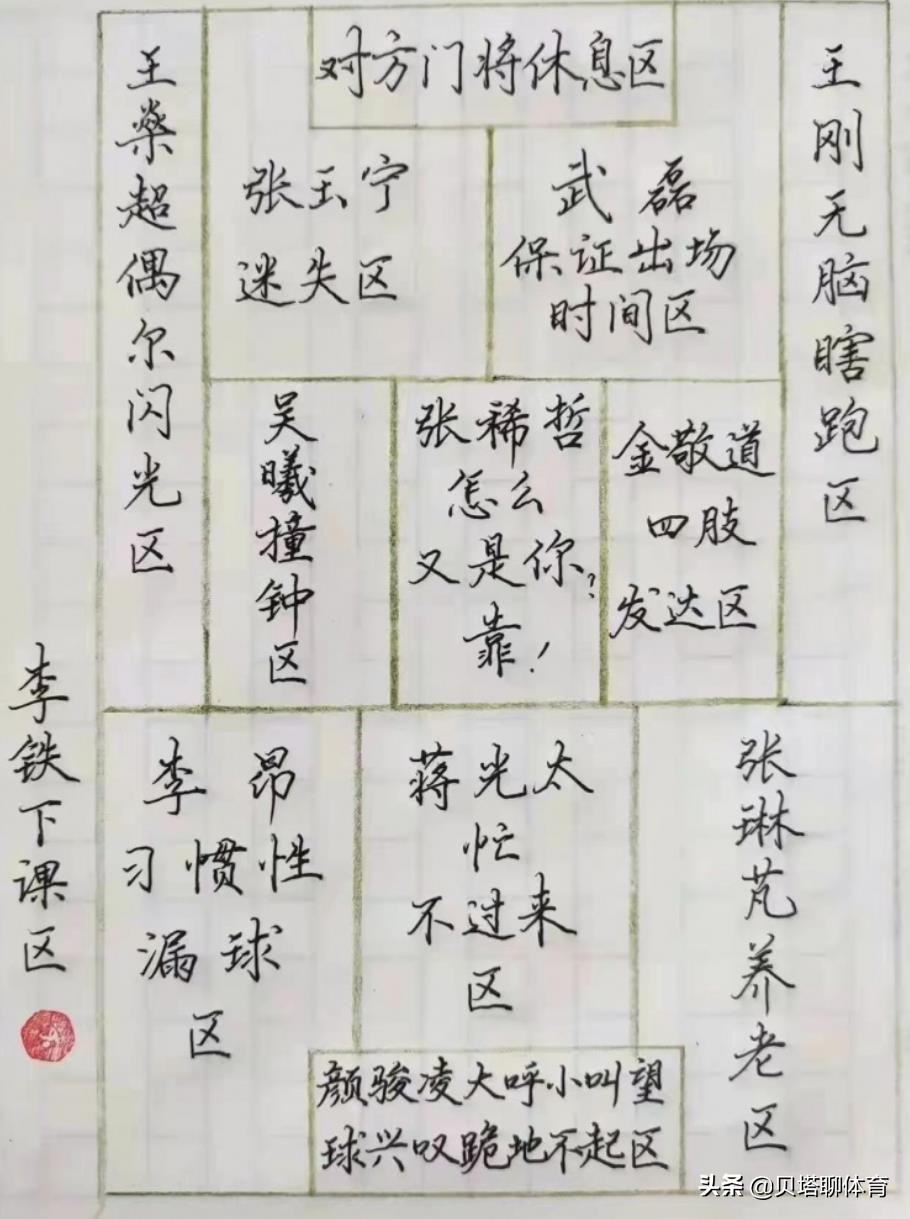 对方门将休息区
王燊超偶尔闪光区
张玉宁
迷失区
武磊
保证出场
时间区
王刚无脑瞎跑区
吴曦撞钟区
张稀哲
怎么
又是你?
靠!
金敬道
四肢
发达区
李铁下课区
李昂
习惯性
漏球
区
蒋光太
忙
不过来
区
张琳芃养老区
颜骏凌大呼小叫望
球兴叹跪地不起区
头条 @贝塔聊体育